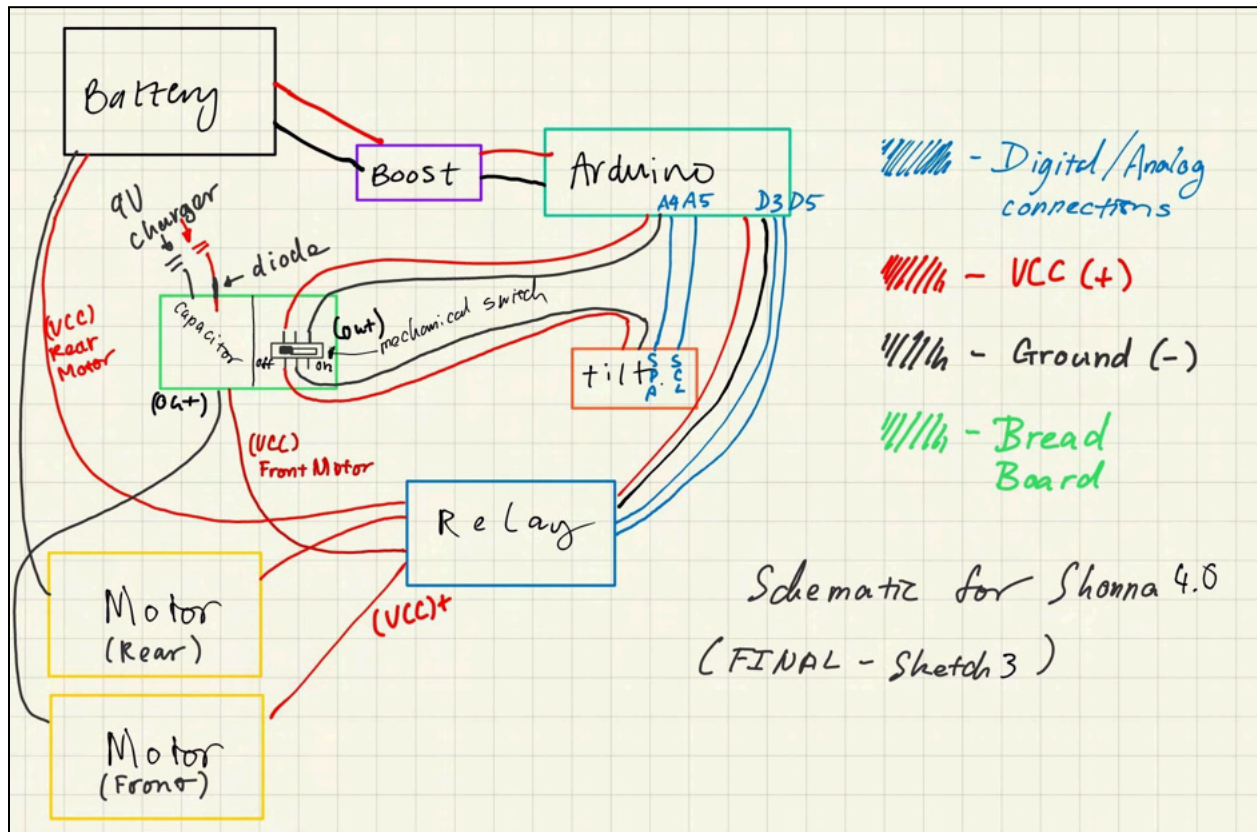 Battery
Boost
Arduino
A4 A5
D3 D5
9V
charger
diode
capacitor
off
on
(out)
mechanical switch
(out)
(VCC)
Rear
Motor
(VCC)
Front Motor
tilt
SPA
SCL
Relay
(VCC)+
Motor
(Rear)
Motor
(Front)
- Digital/Analog
connections
- VCC (+)
- Ground (-)
- Bread
Board
Schematic for Shonna 4.0
(FINAL - Sketch 3)